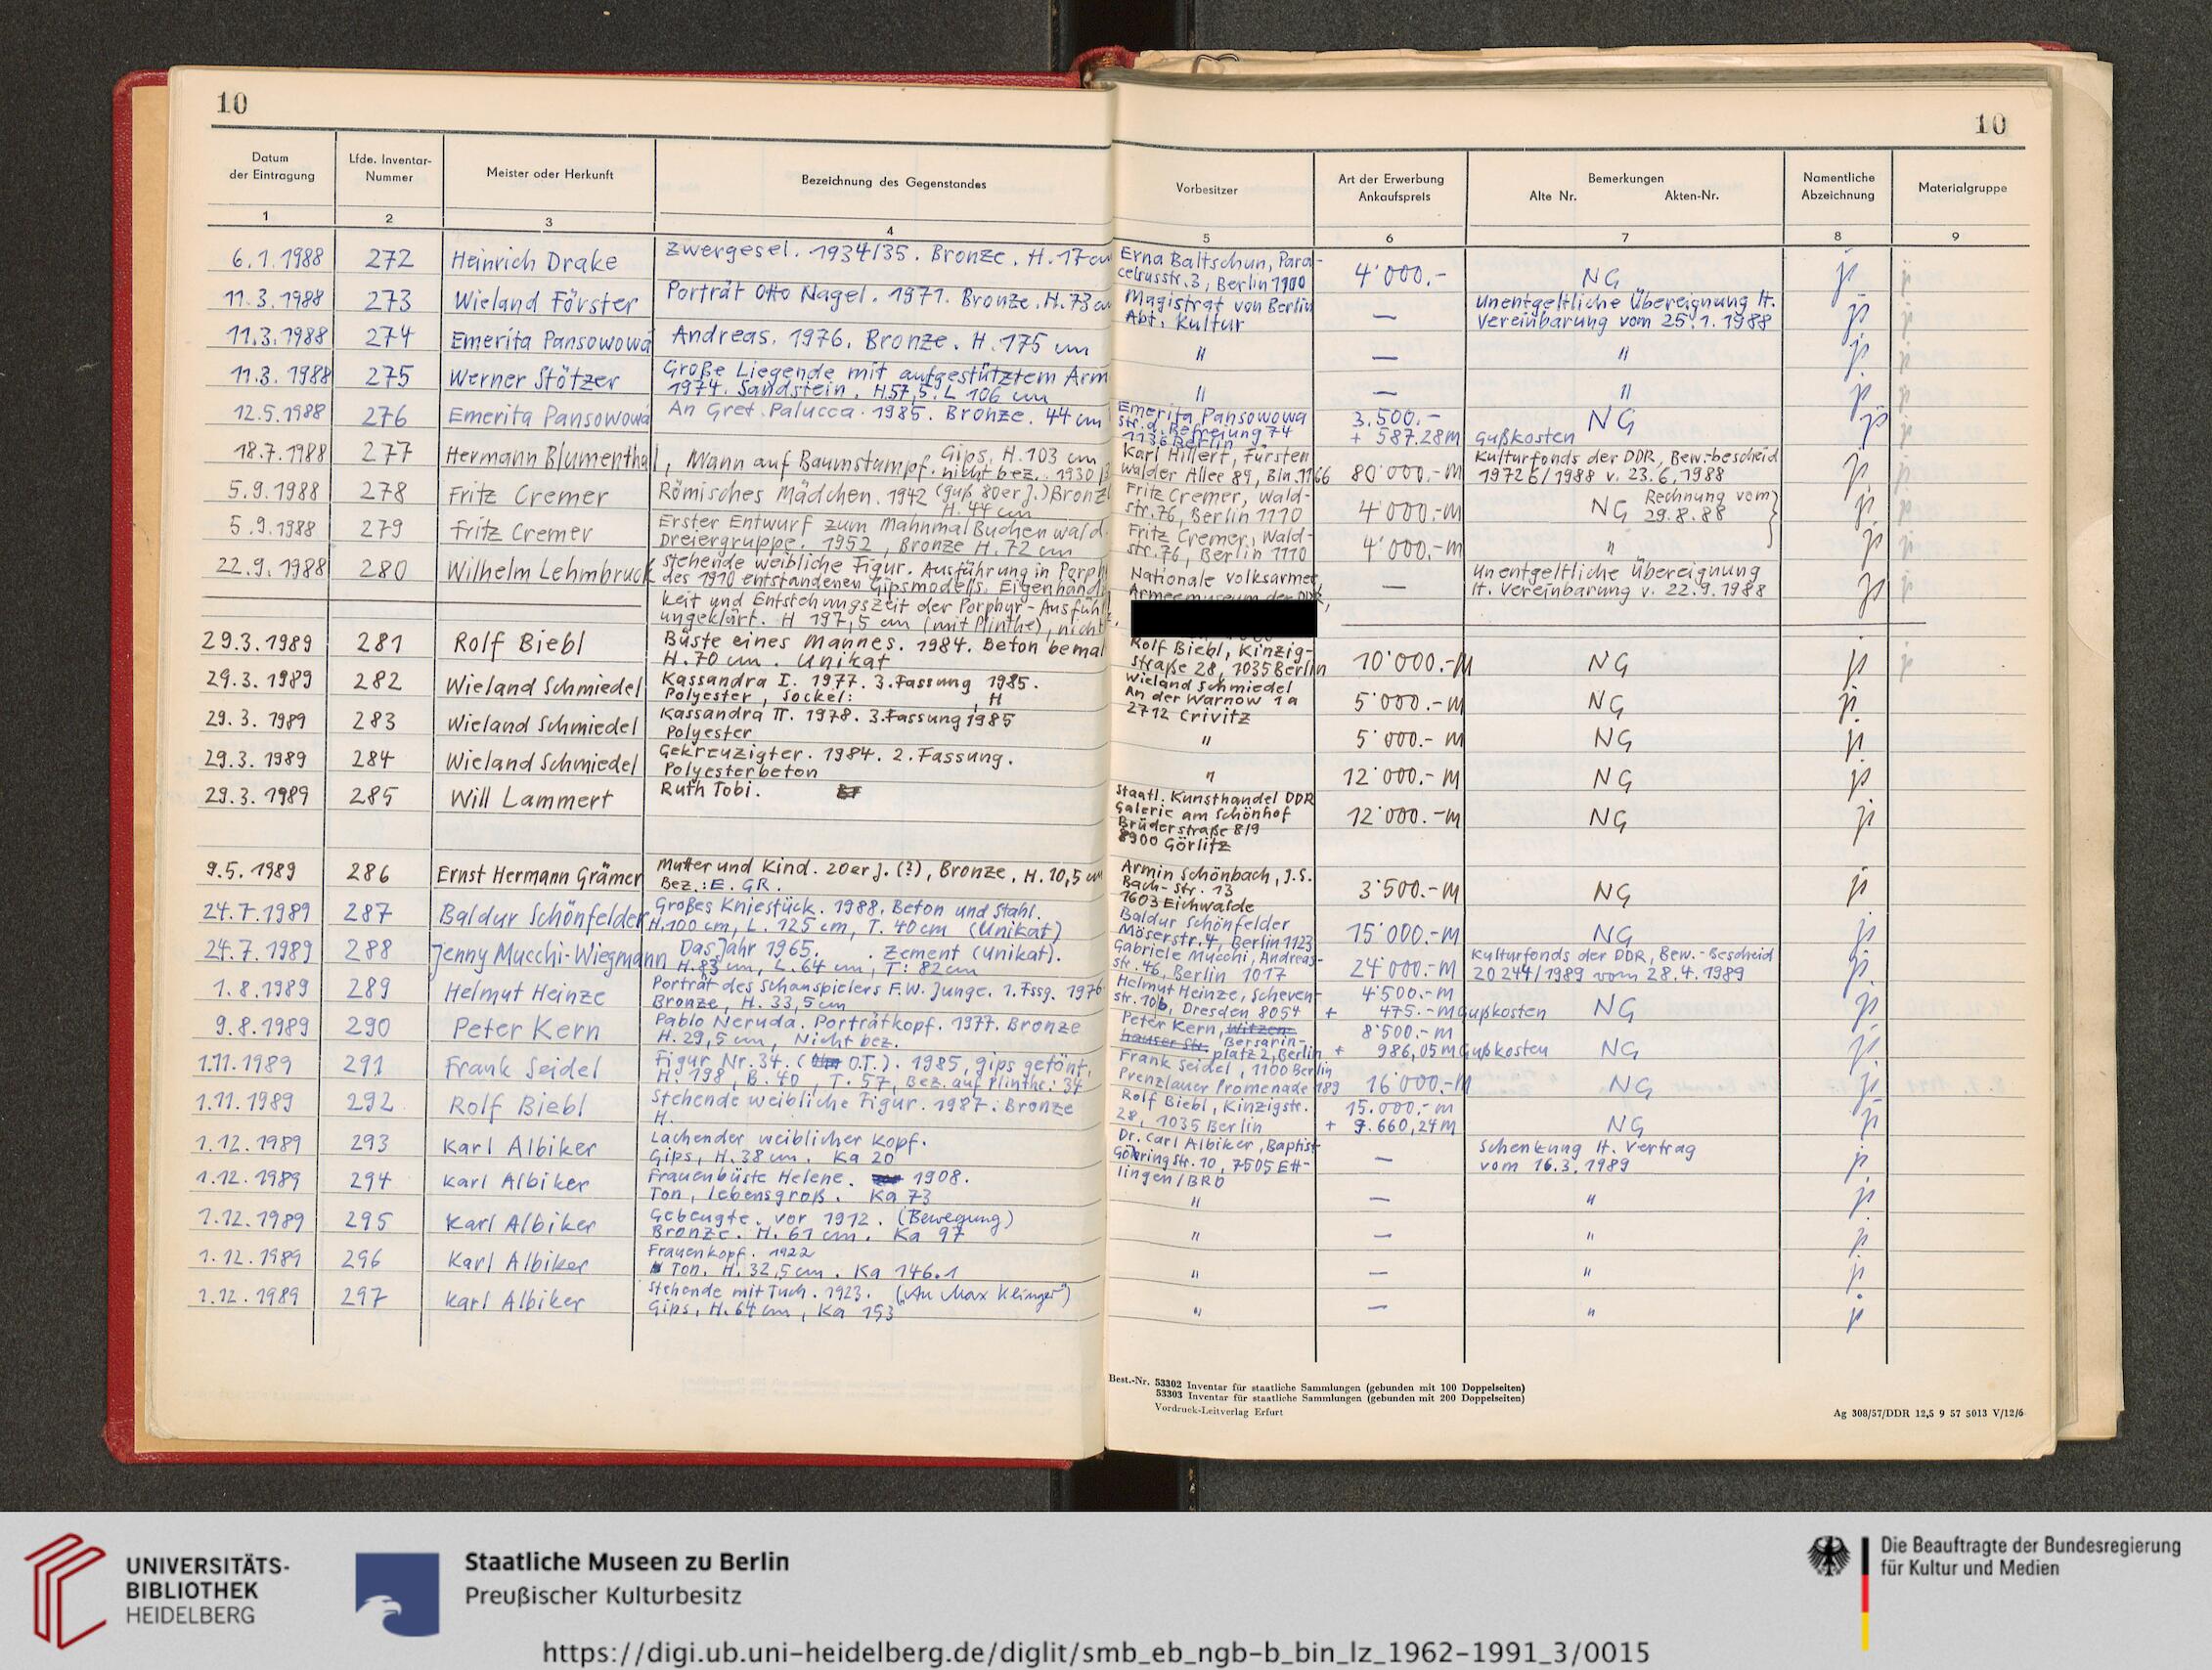 10
10
Datum der Eintragung | Lfde. Inventar-Nummer | Meister oder Herkunft | Bezeichnung des Gegenstandes | Vorbesitzer | Art der Erwerbung Ankaufspreis | Bemerkungen Alte Nr. Akten-Nr. | Namentliche Abzeichnung | Materialgruppe
1 | 2 | 3 | 4 | 5 | 6 | 7 | 8 | 9
6.1.1988 | 272 | Heinrich Drake | Zwergesel. 1934/35. Bronze. H. 17 cm | Erna Baltschun, Para-celsusstr. 3, Berlin 1100 | 4'000.- | NG
11.3.1988 | 273 | Wieland Förster | Porträt Otto Nagel. 1971. Bronze. H. 73 cm | Magistrat von Berlin Abt. Kultur | — | Unentgeltliche Übereignung lt. Vereinbarung vom 25.1.1988
11.3.1988 | 274 | Emerita Pansowowa | Andreas. 1976. Bronze. H. 175 cm | " | — | "
11.3.1988 | 275 | Werner Stötzer | Große Liegende mit aufgestütztem Arm 1974. Sandstein. H 57,5. L 106 cm | " | — | "
12.5.1988 | 276 | Emerita Pansowowa | An Gret Palucca. 1985. Bronze. 44 cm | Emerita Pansowowa Str. d. Befreiung 74 1136 Berlin | 3.500.- + 587.28 M | Gußkosten NG
18.7.1988 | 277 | Hermann Blumenthal, | Mann auf Baumstumpf. Gips, H. 103 cm nicht bez. | Karl Hillert, Fürsten walder Allee 89, Bln. 1166 | 80'000.-M | Kulturfonds der DDR, Bew.-bescheid 19726/1988 v. 23.6.1988
5.9.1988 | 278 | Fritz Cremer | Römisches Mädchen. 1942 (Guß 80er J.) Bronze H. 44 cm | Fritz Cremer, Wald-str. 76, Berlin 1110 | 4'000.-M | NG Rechnung vom 29.8.88
5.9.1988 | 279 | Fritz Cremer | Erster Entwurf zum Mahnmal Buchenwald. Dreiergruppe. 1952, Bronze H. 72 cm | Fritz Cremer, Wald-str. 76, Berlin 1110 | 4'000.-M | "
22.9.1988 | 280 | Wilhelm Lehmbruck | Stehende weibliche Figur. Ausführung in Porph des 1910 entstandenen Gipsmodells. Eigenhändig keit und Entstehungszeit der Porphyr-Ausfüh ungeklärt. H 197,5 cm (mit Plinthe), nicht | Nationale Volksarmee, Armeemuseum der DDR, | — | Unentgeltliche Übereignung lt. Vereinbarung v. 22.9.1988
29.3.1989 | 281 | Rolf Biebl | Büste eines Mannes. 1984. Beton bemal H. 70 cm. Unikat | Rolf Biebl, Kinzig-straße 28, 1035 Berlin | 10'000.-M | NG
29.3.1989 | 282 | Wieland Schmiedel | Kassandra I. 1977. 3. Fassung 1985. Polyester, Sockel: , H | Wieland Schmiedel An der Warnow 1a 2712 Crivitz | 5'000.-M | NG
29.3.1989 | 283 | Wieland Schmiedel | Kassandra II. 1978. 3. Fassung 1985 Polyester | " | 5'000.-M | NG
29.3.1989 | 284 | Wieland Schmiedel | Gekreuzigter. 1984. 2. Fassung. Polyesterbeton | " | 12'000.-M | NG
29.3.1989 | 285 | Will Lammert | Ruth Tobi. | Staatl. Kunsthandel DDR Galerie am Schönhof Brüderstraße 8/9 8900 Görlitz | 12'000.-M | NG
9.5.1989 | 286 | Ernst Hermann Grämer | Mutter und Kind. 20er J. (?), Bronze. H. 10,5 cm Bez.: E. GR. | Armin Schönbach, J.S. Bach-Str. 13 1603 Eichwalde | 3'500.-M | NG
24.7.1989 | 287 | Baldur Schönfelder | Großes Kniestück. 1988. Beton und Stahl. H. 100 cm, L. 125 cm, T. 40 cm (Unikat) | Baldur Schönfelder Möserstr. 4, Berlin 1123 | 15'000.-M | NG
24.7.1989 | 288 | Jenny Mucchi-Wiegmann | Das Jahr 1965. . Zement (Unikat). H. 83 cm, L. 64 cm, T: 82 cm | Gabriele Mucchi, Andreas-str. 46, Berlin 1017 | 24'000.-M | Kulturfonds der DDR, Bew.-Bescheid 20244/1989 vom 28.4.1989
1.8.1989 | 289 | Helmut Heinze | Porträt des Schauspielers F.W. Junge. 1. Fssg. 1976 Bronze, H. 33,5 cm | Helmut Heinze, Scheven-str. 10b, Dresden 8054 | 4'500.-M + 475.-M | Gußkosten NG
9.8.1989 | 290 | Peter Kern | Pablo Neruda. Porträtkopf. 1977. Bronze H. 29,5 cm, Nicht bez. | Peter Kern, Witzen-hauser Str. Bersarin-platz 2, Berlin | 8'500.-M + 986,05 M | Gußkosten NG
1.11.1989 | 291 | Frank Seidel | Figur Nr. 34. (O.T.). 1985, Gips getönt, H. 198, B. 40, T. 57, Bez. auf Plinthe: 34 | Frank Seidel, 1100 Berlin Prenzlauer Promenade 189 | 16'000.-M | NG
1.11.1989 | 292 | Rolf Biebl | Stehende weibliche Figur. 1987. Bronze H. | Rolf Biebl, Kinzigstr. 28, 1035 Berlin | 15.000,-M + 9.660,24 M | NG
1.12.1989 | 293 | Karl Albiker | Lachender weiblicher Kopf. Gips, H. 38 cm. Ka 20 | Dr. Carl Albiker, Baptist Göhring Str. 10, 7505 Ett-lingen/BRD | — | Schenkung lt. Vertrag vom 16.3.1989
1.12.1989 | 294 | Karl Albiker | Frauenbüste Helene. 1908. Ton, lebensgroß. Ka 73 | " | — | "
1.12.1989 | 295 | Karl Albiker | Gebeugte. vor 1912. (Bewegung) Bronze. H. 61 cm. Ka 97 | " | — | "
1.12.1989 | 296 | Karl Albiker | Frauenkopf. 1922 Ton. H. 32,5 cm. Ka 146.1 | " | — | "
1.12.1989 | 297 | Karl Albiker | Stehende mit Tuch. 1923. („An Max Klinger“) Gips, H. 64 cm, Ka 153 | " | — | "
Best.-Nr. 53302 Inventar für staatliche Sammlungen (gebunden mit 100 Doppelseiten)
53303 Inventar für staatliche Sammlungen (gebunden mit 200 Doppelseiten)
Vordruck-Leitverlag Erfurt
Ag 308/57/DDR 12,5 9 57 5013 V/12/6
UNIVERSITÄTS-
BIBLIOTHEK
HEIDELBERG
Staatliche Museen zu Berlin
Preußischer Kulturbesitz
Die Beauftragte der Bundesregierung
für Kultur und Medien
https://digi.ub.uni-heidelberg.de/diglit/smb_eb_ngb-b_bin_lz_1962-1991_3/0015